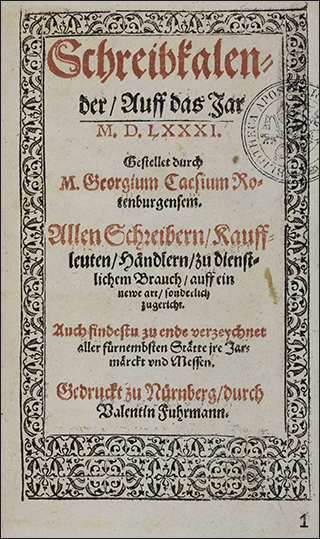 Schreibkalen-
der/ Auff das Jar
M. D. LXXXI.
Gestellet durch
M. Georgium Caesium Ro-
tenburgensem.
Allen Schreibern/ Kauff-
leuten/ Händlern/ zu dienst-
lichem Brauch/ auff ein
newe art/ sonderlich
zugericht.
Auch findestu zu ende verzeychnet
aller fürnembsten Stätte jre Jar-
märckt vnd Messen.
Gedruckt zu Nürnberg/ durch
Valentin Fuhrmann.
1